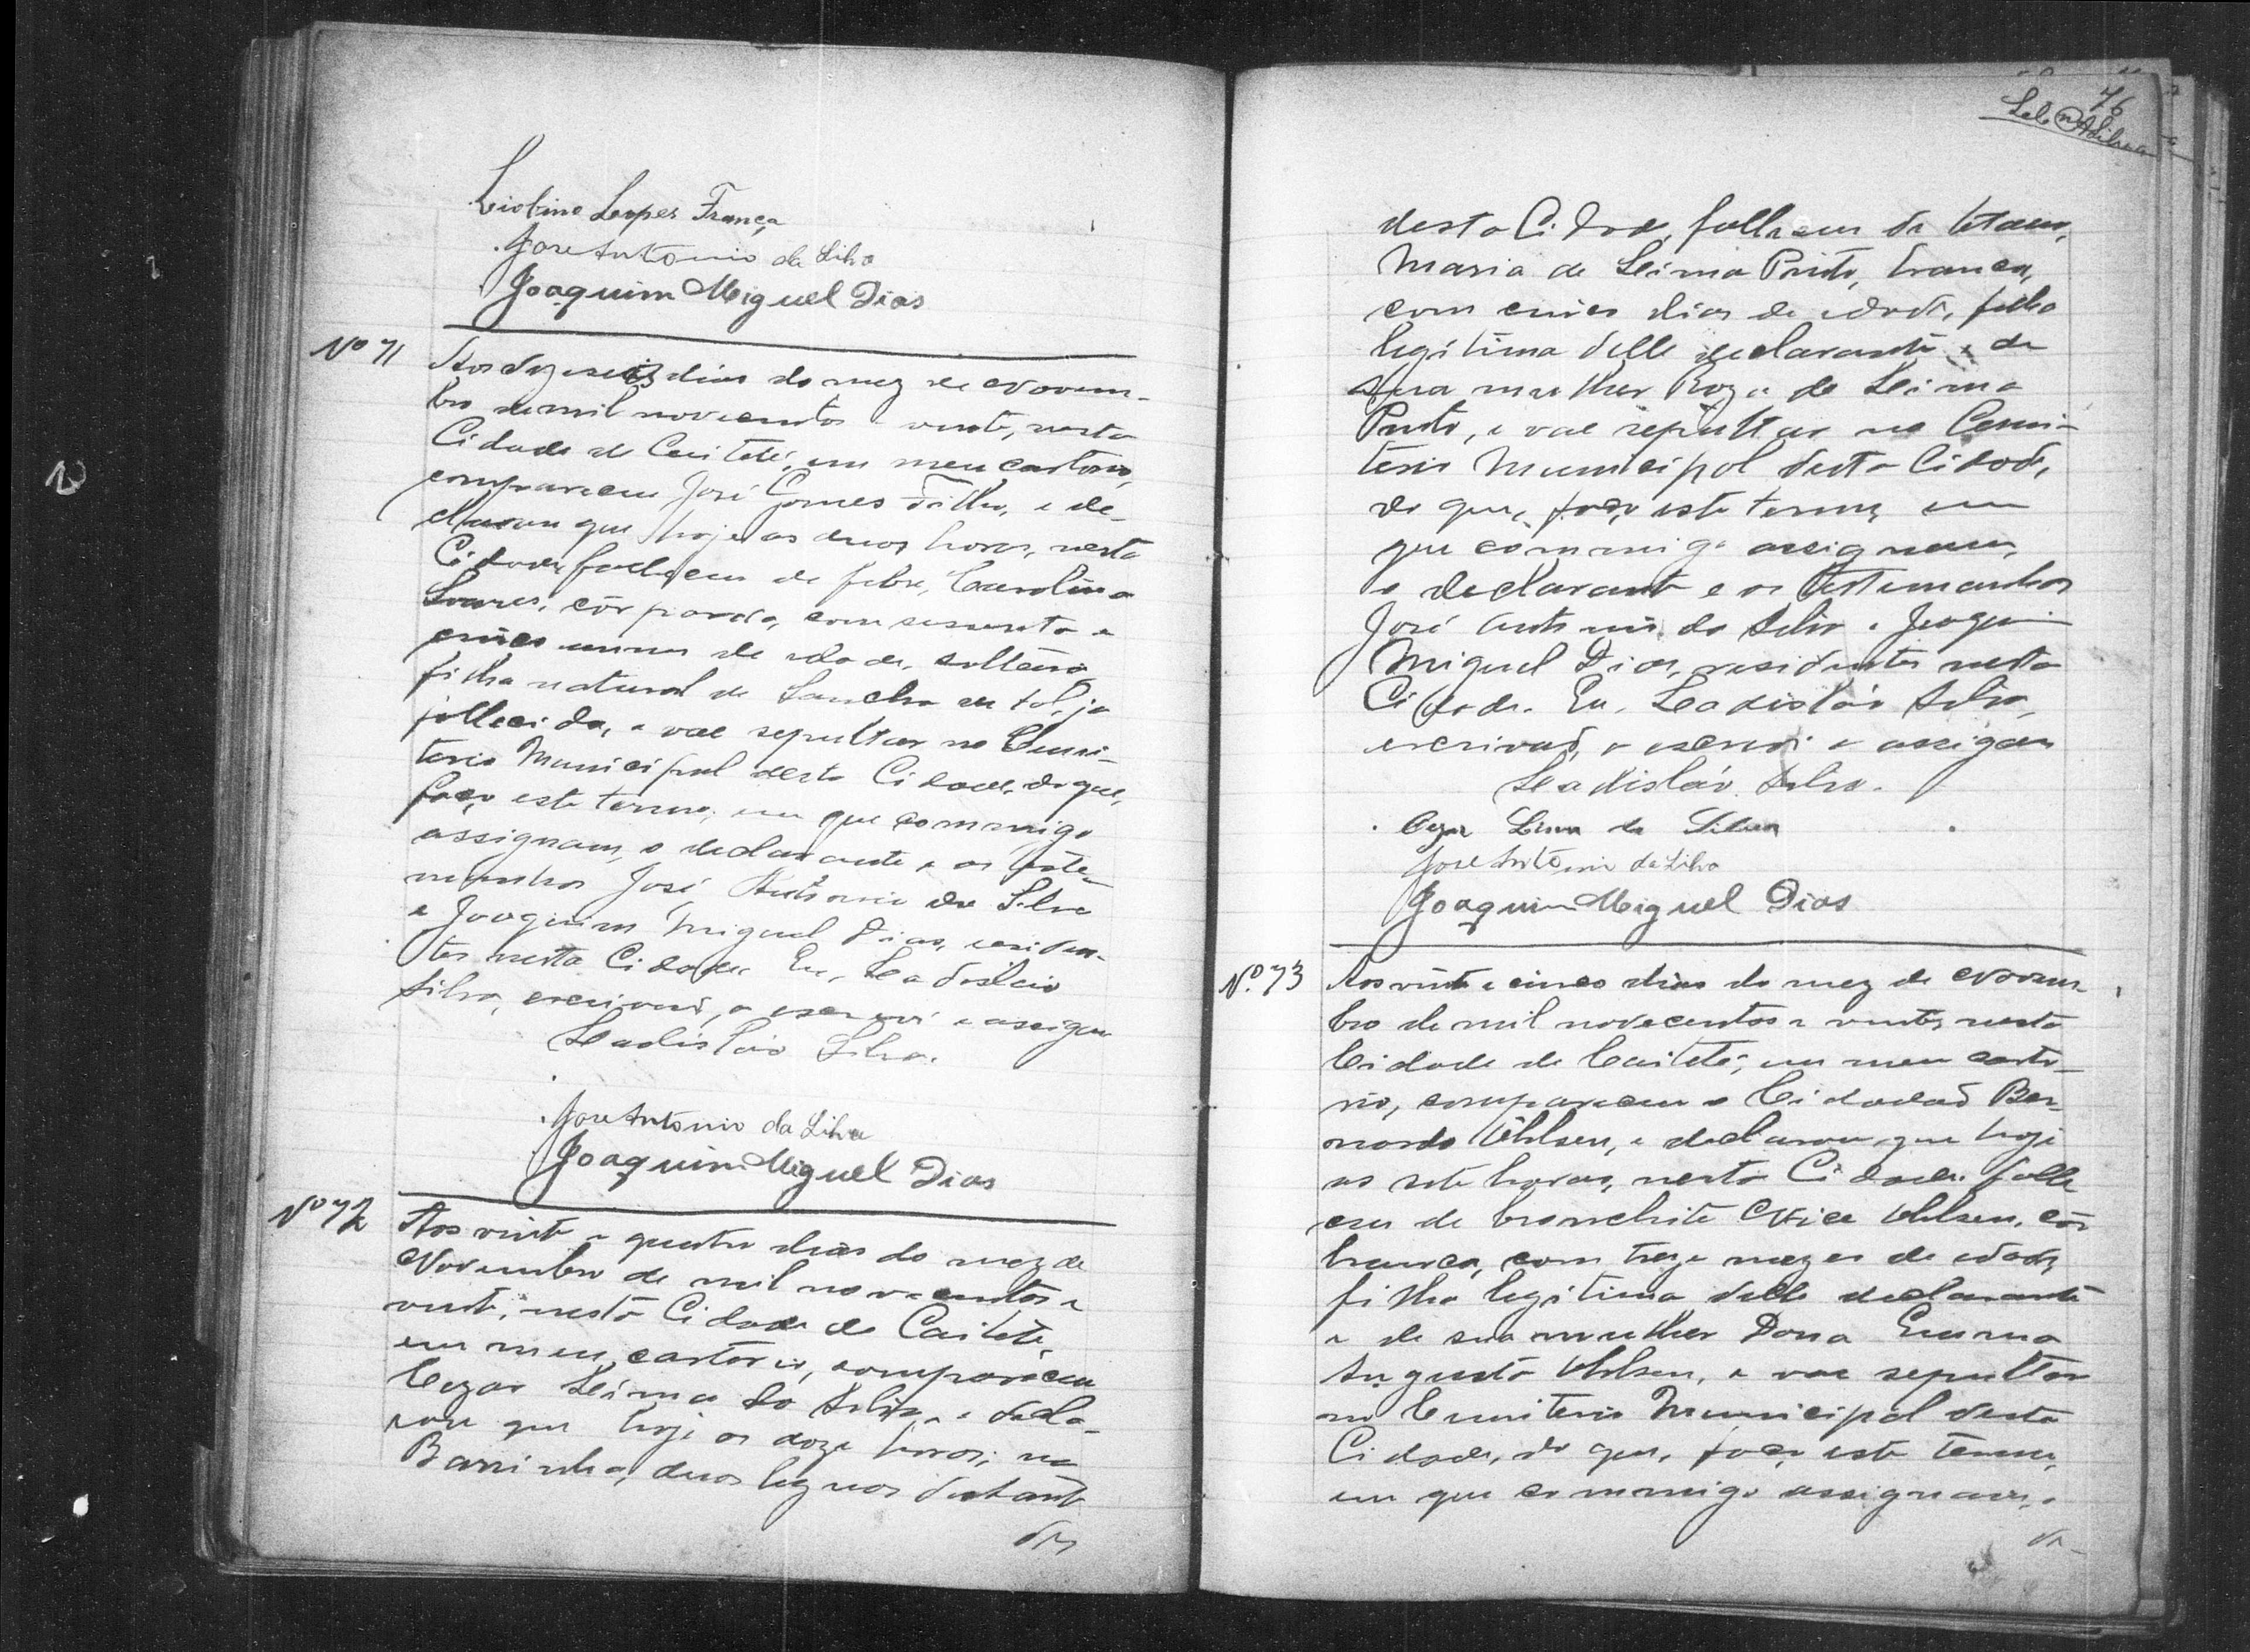 Liobino Lopes França
José Antonio da Silva
Joaquim Miguel Dias
Nº 71
Aos dezeseis dias do mez de Novem-
bro de mil novecentos e vinte, nesta
Cidade de Caiteté, em meu cartorio,
compareceu José Gomes Filho, e de-
clarou que hoje as duas horas, nesta
Cidade falleceu de febre, Carolina
Soares, côr parda, com sessenta e
cinco annos de idade, solteira,
filha natural de Sancha de tal, ja
fallecida, e vae sepultar no Cemi-
terio Municipal desta Cidade, do que,
faço este termo, em que commigo
assignam, o declarante e as teste-
munhas José Antonio da Silva
e Joaquim Miguel Dias, residen-
tes nesta Cidade. Eu, Leadisláo
Silva, escrivaõ, o escrevi e assigno
Leadisláo Silva.
José Antonio da Silva
Joaquim Miguel Dias
Nº 72
Aos vinte e quatro dias do mez de
Novembro de mil novecentos e
vinte, nesta Cidade de Caiteté,
em meu cartorio, compareceu
Cezar Lima da Silva, e decla-
rou que hoje as doze horas, na
Barrinha, duas leguas distante
76
desta Cidade, falleceu de tetano,
Maria de Lima Pinto, branca,
com cinco dias de idade, filha
legitima delle declarante e de
sua mulher Roza de Lima
Pinto, e vae sepultar no Cemi-
terio Municipal desta Cidade,
do que, faço este termo, em
que commigo assignam,
o declarante e as testemunhas
José Antonio da Silva e Joaquim
Miguel Dias, residentes nesta
Cidade. Eu, Leadisláo Silva,
escrivaõ, o escrevi e assigno
Leadisláo Silva.
Cezar Lima da Silva
José Antonio da Silva
Joaquim Miguel Dias
Nº 73
Aos vinte e cinco dias do mez de Novem-
bro de mil novecentos e vinte, nesta
Cidade de Caiteté, em meu carto-
rio, compareceu o Cidadaõ Ber-
nardo Uhlsen, e declarou que hoje
as sete horas, nesta Cidade falle-
ceu de bronchite Nice Uhlsen, côr
branca, com treze mezes de idade,
filha legitima delle declarante
e de sua mulher Dona Emma
Augusta Uhlsen, e vae sepultar
no Cemiterio Municipal desta
Cidade, do que, faço este termo,
em que commigo assignam, o